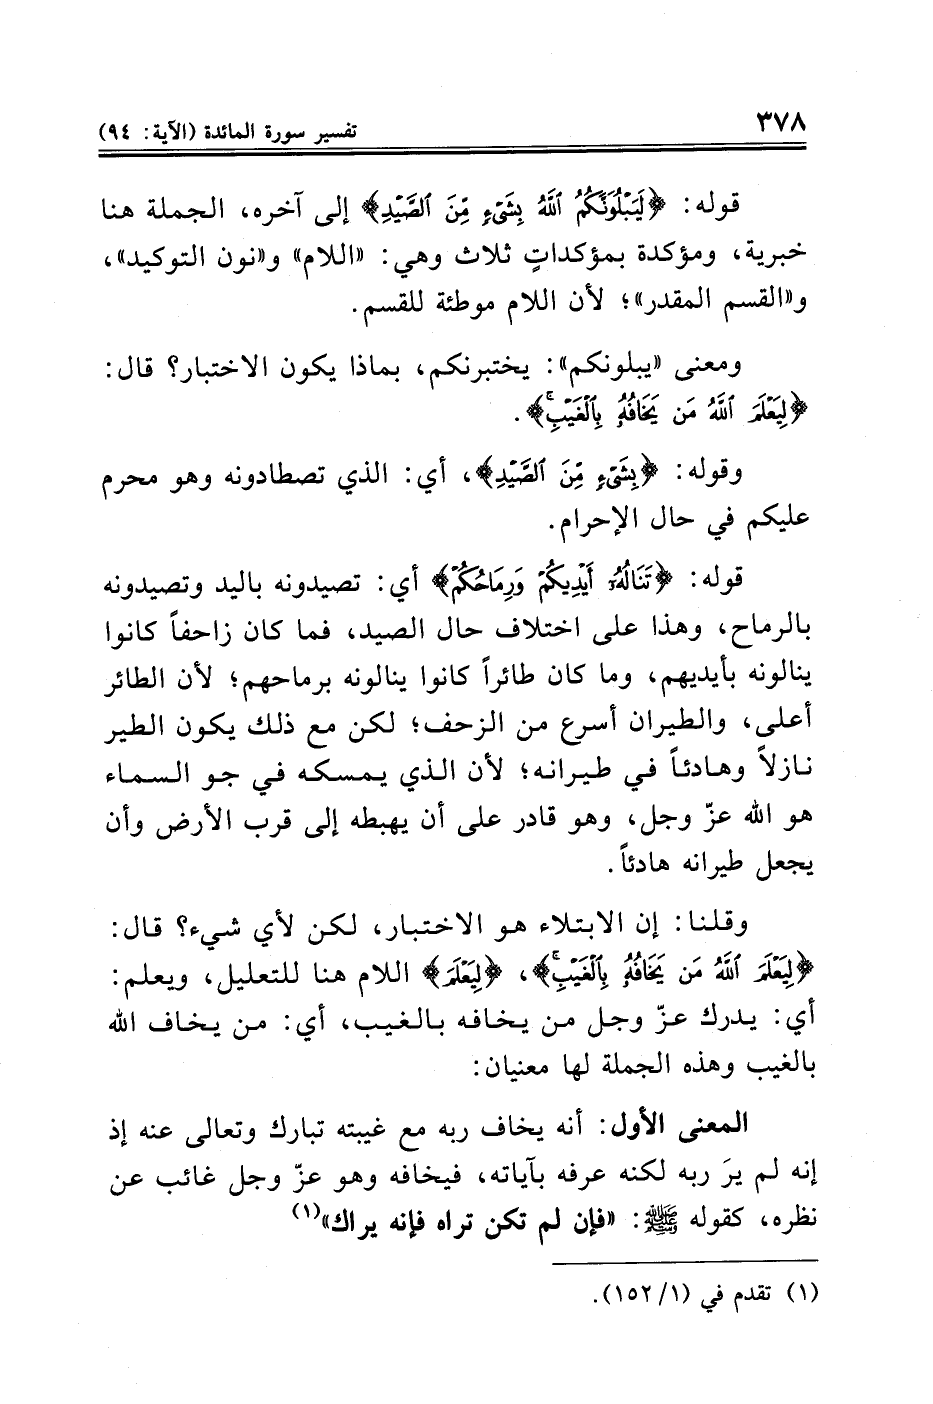 ٣٧٨
تفسير سورة المائدة (الآية: ٩٤)
قوله: ﴿لَيَبْلُوَنَّكُمُ ٱللَّهُ بِشَىْءٍ مِّنَ ٱلصَّيْدِ﴾ إلى آخره، الجملة هنا
خبرية، ومؤكدة بمؤكداتٍ ثلاث وهي: «اللام» و«نون التوكيد»،
و«القسم المقدر»؛ لأن اللام موطئة للقسم.
ومعنى «يبلونكم»: يختبرنكم، بماذا يكون الاختبار؟ قال:
﴿لِيَعْلَمَ ٱللَّهُ مَن يَخَافُهُۥ بِٱلْغَيْبِۚ﴾.
وقوله: ﴿بِشَىْءٍ مِّنَ ٱلصَّيْدِ﴾، أي: الذي تصطادونه وهو محرم
عليكم في حال الإحرام.
قوله: ﴿تَنَالُهُۥٓ أَيْدِيكُمْ وَرِمَاحُكُمْ﴾ أي: تصيدونه باليد وتصيدونه
بالرماح، وهذا على اختلاف حال الصيد، فما كان زاحفاً كانوا
ينالونه بأيديهم، وما كان طائراً كانوا ينالونه برماحهم؛ لأن الطائر
أعلى، والطيران أسرع من الزحف؛ لكن مع ذلك يكون الطير
نازلاً وهادئاً في طيرانه؛ لأن الذي يمسكه في جو السماء
هو الله عزّ وجل، وهو قادر على أن يهبطه إلى قرب الأرض وأن
يجعل طيرانه هادئاً.
وقلنا: إن الابتلاء هو الاختبار، لكن لأي شيء؟ قال:
﴿لِيَعْلَمَ ٱللَّهُ مَن يَخَافُهُۥ بِٱلْغَيْبِۚ﴾، ﴿لِيَعْلَمَ﴾ اللام هنا للتعليل، ويعلم:
أي: يدرك عزّ وجل من يخافه بالغيب، أي: من يخاف الله
بالغيب وهذه الجملة لها معنيان:
المعنى الأول: أنه يخاف ربه مع غيبته تبارك وتعالى عنه إذ
إنه لم يرَ ربه لكنه عرفه بآياته، فيخافه وهو عزّ وجل غائب عن
نظره، كقوله ﷺ: «فإن لم تكن تراه فإنه يراك»(١)
(١) تقدم في (١/ ١٥٢).